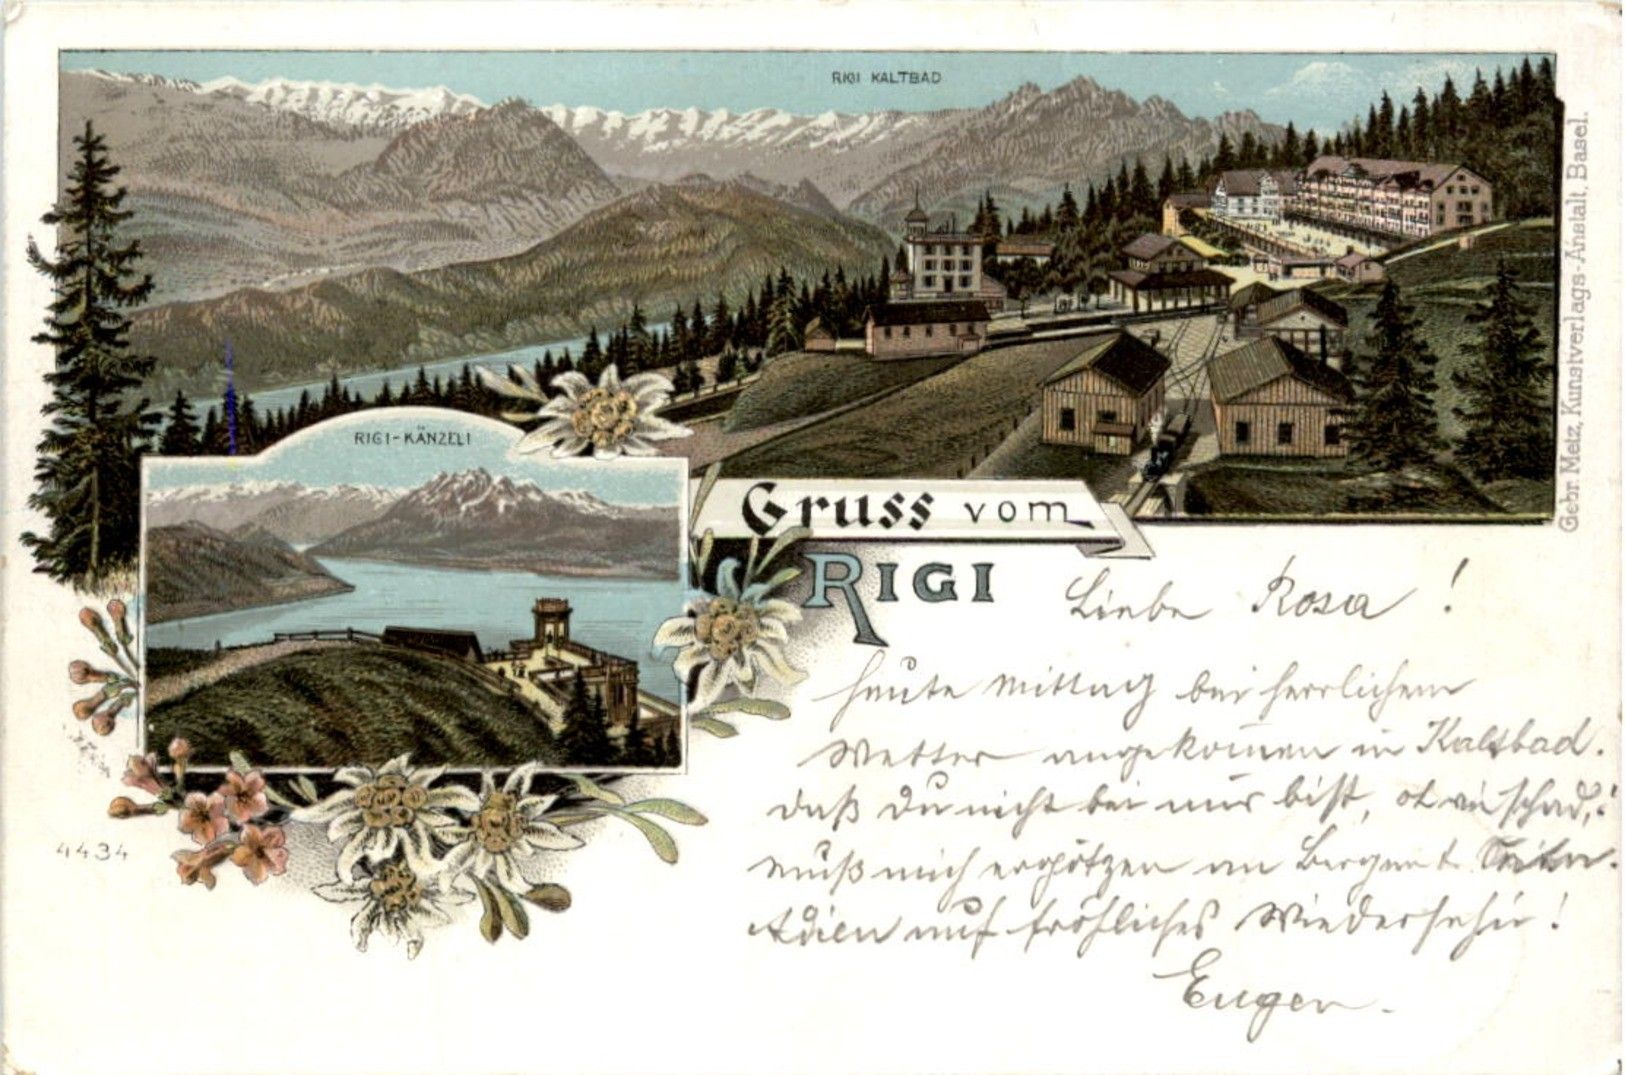 RIGI KALTBAD
RIGI-KÄNZELI
Gruss vom
RIGI
Gebr. Metz, Kunstverlags-Anstalt, Basel.
4434
Liebe Rosa !
heute Mittag bei herrlichem
Wetter angekom̅en in Kaltbad.
daß Du nicht bei mir bist, o wie schad,!
muß mich ergötzen an Bergen &
Adieu auf fröhliches Wiedersehn!
Eugen.